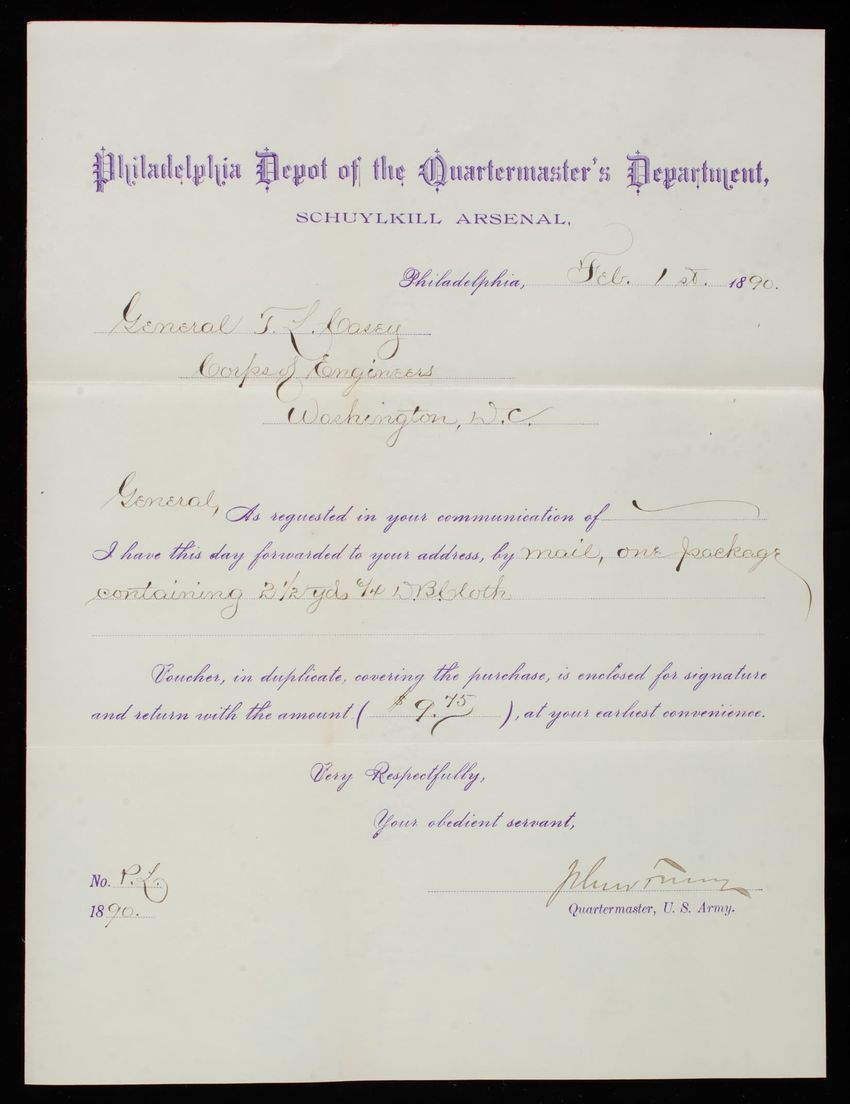 Philadelphia Depot of the Quartermaster's Department,
SCHUYLKILL ARSENAL,
Philadelphia, Feb. 1st. 1890.
General T. L. Casey
Corps of Engineers
Washington, D.C.
General, As requested in your communication of
I have this day forwarded to your address, by mail, one package
containing 2 1/2 yds 6/4 D B Cloth
Voucher, in duplicate, covering the purchase, is enclosed for signature
and return with the amount ( $9.75 ), at your earliest convenience.
Very Respectfully,
Your obedient servant,
No. P.L.
1890.
Quartermaster, U. S. Army.